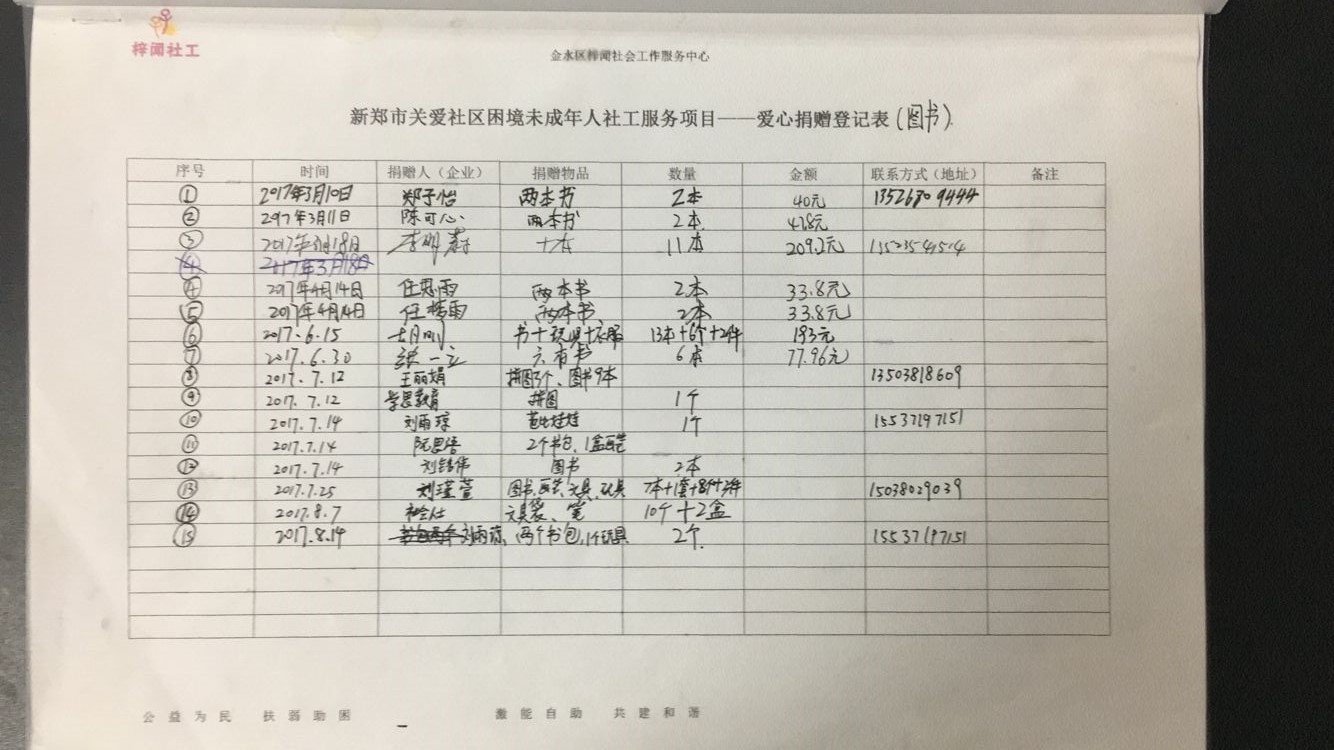 梓闻社工
金水区梓闻社会工作服务中心
新郑市关爱社区困境未成年人社工服务项目——爱心捐赠登记表(图书)
序号 时间 捐赠人（企业） 捐赠物品 数量 金额 联系方式（地址） 备注
① 2017年3月10日 郑子怡 两本书 2本 40元
② 2017年3月11日 陈可心 两本书 2本
③ 2017年3月18日 十本 11本 209.2元
④ 2017年3月18日
④ 2017年4月14日 任思雨 两本书 2本 33.8元
⑤ 2017年4月14日 任梦雨 两本书 2本 33.8元
⑥ 2017.6.15 胡刚 书+玩具+衣服 13本+6个+2件 193元
⑦ 2017.6.30 张一 六本书 6本 77.96元
⑧ 2017.7.12 王丽娟 图书9本 13503818609
⑨ 2017.7.12 学思教育 拼图 1个
⑩ 2017.7.14 刘雨琼 芭比娃娃 1个 15537197151
⑪ 2017.7.14 2个书包、1盒
⑫ 2017.7.14 图书 2本
⑬ 2017.7.25 刘瑾萱 图书、文具、玩具 15038029039
⑭ 2017.8.7 文具袋、笔 10个+2盒
⑮ 2017.8.14 刘雨琼 两个书包,1个玩具 2个. 15537197151
公益为民 扶弱助困 激能自助 共建和谐